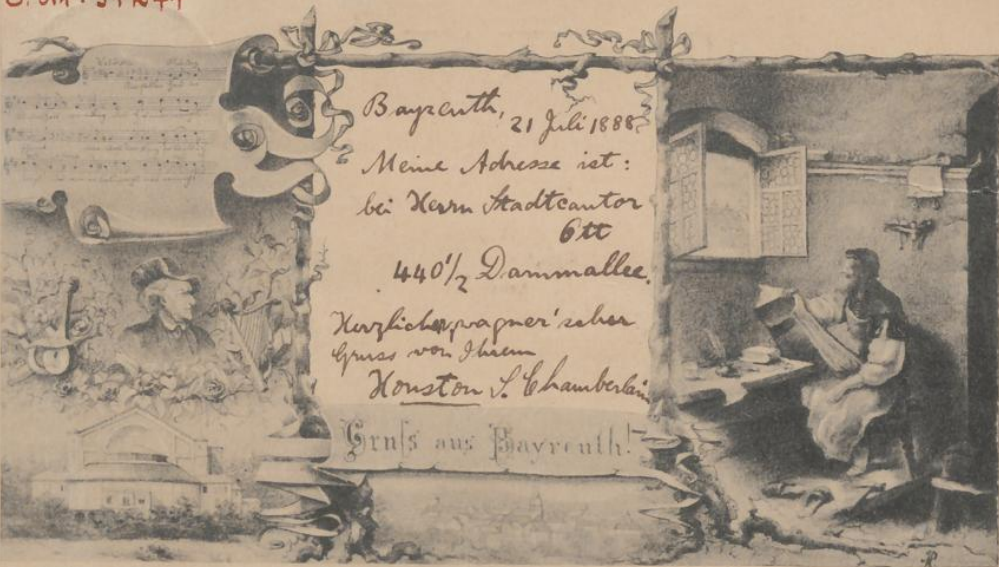 Bayreuth,
21 Juli 1888
Meine Adresse ist:
bei Herrn Stadtcantor
Ott
440 1/2 Dammallee.
Herzlicher wagner'scher
Gruss von Ihrem
Houston S. Chamberlain
Gruß aus Bayreuth!